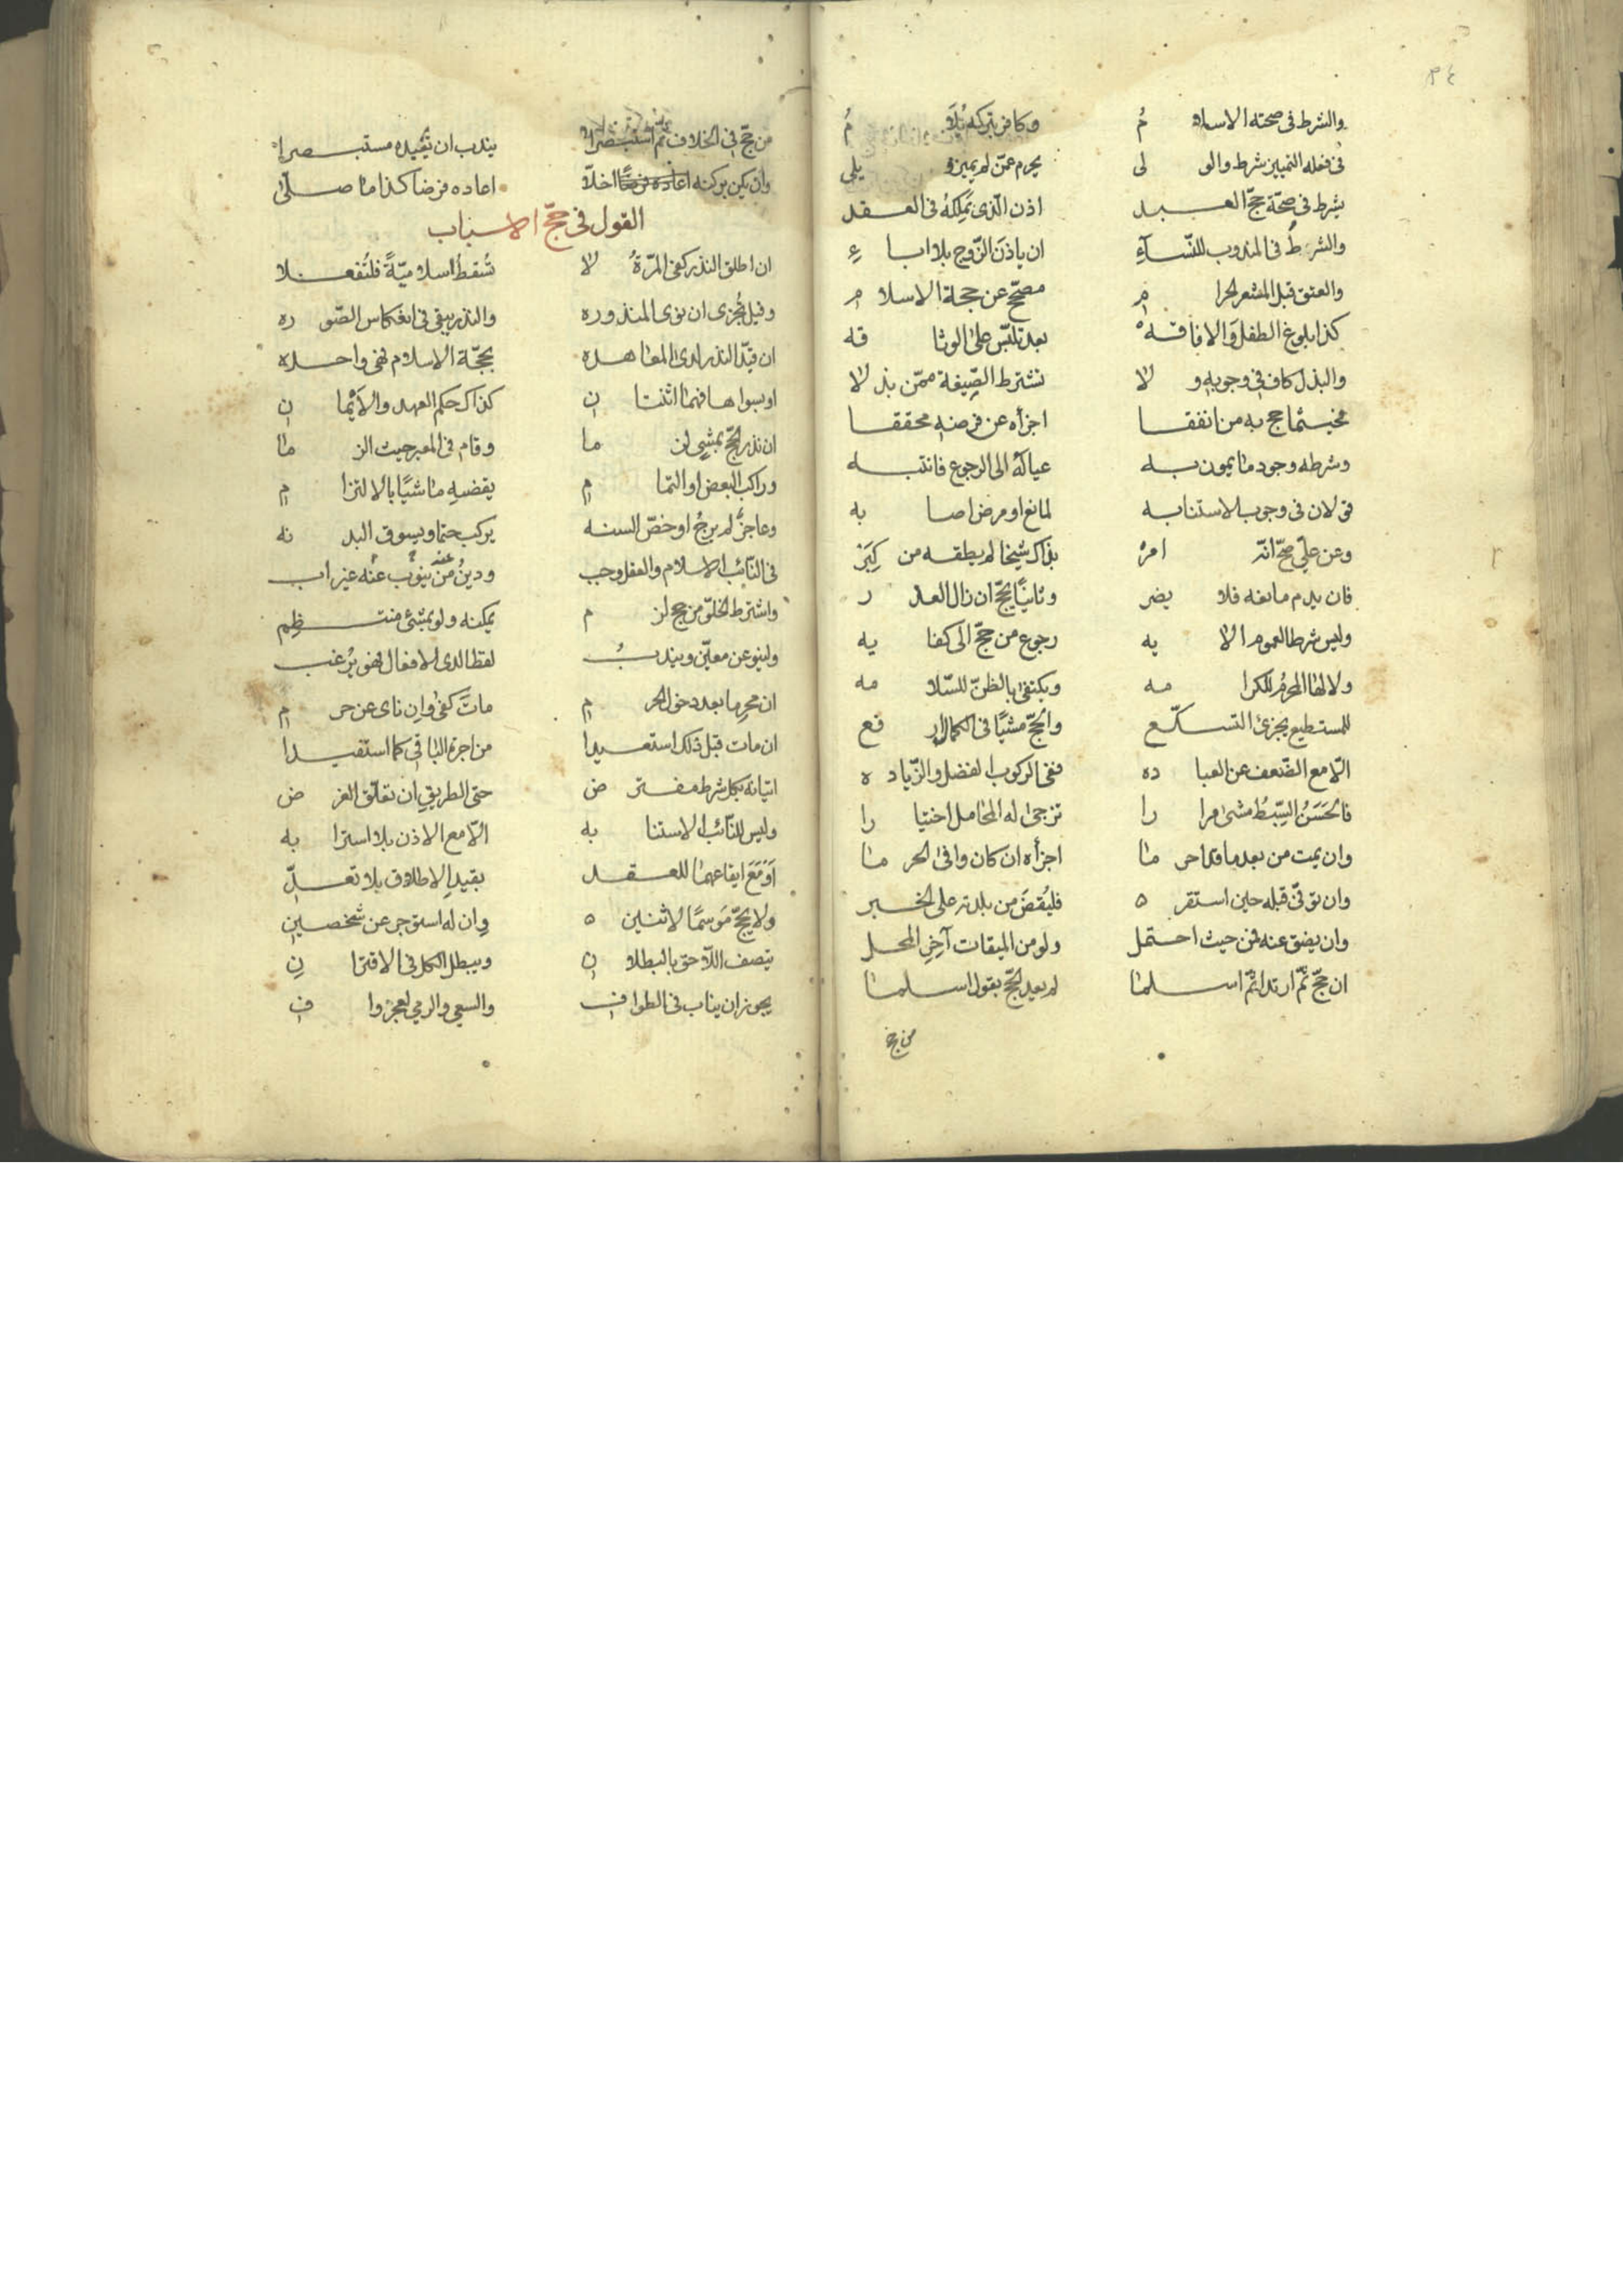 ٣٤
والشرط في صحته الاسلام وكافر بتركه يلام
في فعله التمييز شرط والولي يحرم عمن لم يميز يلي
يشرط في صحة حج العبد اذن الذي يملكه في العقد
والشرط في المندوب للنساء ان ياذن الزوج بلا اباء
والعتق قبل المشعر الحرام مصحح عن حجة الاسلام
كذا بلوغ الطفل والافاقه بعد تلبس على الوثاقه
والبذل كاف في وجوبه ولا نشترط الصيغة ممن بذلا
فحيثما حج به من انفقا اجزأه عن فرضه محققا
وشرطه وجود ما يمون به عياله الى الرجوع فانتبه
قولان في وجوب الاستنابه لمانع او مرض اصابه
وعن علي صح انه امر بذاك شيخا لم يطقه من كبر
فان يدم مانعه فلا يضر وثانيا يحج ان زال العذر
وليس شرطا لعموم الايه رجوع من حج الى كفايه
ولا لها المحرم للكرامه ويكتفى بالظن للسلامه
للمستطيع يجزئ التسكع والحج مشيا في الكمال ارفع
الا مع الضعف عن العباده ففي الركوب الفضل والزياده
فالحسن السبط مشى مرارا تزجى له المحامل اختيارا
وان يمت من بعد ما قد احرما اجزأه ان كان وافى الحرما
وان توفي قبله حين استقر فليقض من بلدته على الخبر
وان يضق عنه فمن حيث احتمل ولو من الميقات آخر المحل
ان حج ثم ارتد ثم اسلما لم يعد الحج بقول اسلما
من حج
من حج في الخلاف ثم استبصرا يندب ان يعيده مستبصرا
وان يكن بركنه اخلا اعاده فرضا كذا ما صلى
القول في حج الاسباب
ان اطلق النذر كفى المرة لا تسقط اسلامية فلتفعلا
وقيل تجزى ان نوى المنذوره والنذر يبقى في انعكاس الصوره
ان قيد النذر لدى المعاهده بحجة الاسلام فهي واحده
او بسواها فهما اثنتان كذاك حكم العهد والايمان
ان نذر الحج بمشي لزما وقام في المعبر حيث الزما
وراكب البعض او التمام يقضيه ماشيا بالالتزام
وعاجز لم يرج او خص السنه يركب حتما ويسوق البدنه
في النائب الاسلام والعقل وجب ودين من ينوب عنه غير اب
واشترط الخلو من حج لزم يمكنه ولو بمشي منتظم
ولينو عن معين ويندب لفظا لدى الافعال فهو يرغب
ان محرما بعد دخول الحرم مات كفى وان نأى عن حرم
ان مات قبل ذلك استعيدا من اجرة الباقي كما استفيدا
اتيانه بكل شرط مفترض حتى الطريق ان تعلق الغرض
وليس للنائب الاستنابه الا مع الاذن بلا استرابه
او مع ايقاعهما للعقد بقيد الاطلاق بلا تعد
ولا يحج موسما لاثنين وان له استوجر عن شخصين
يتصف اللاحق بالبطلان ويبطل الكل في الاقتران
يجوز ان يناب في الطواف والسعي والرمي لعجز واف